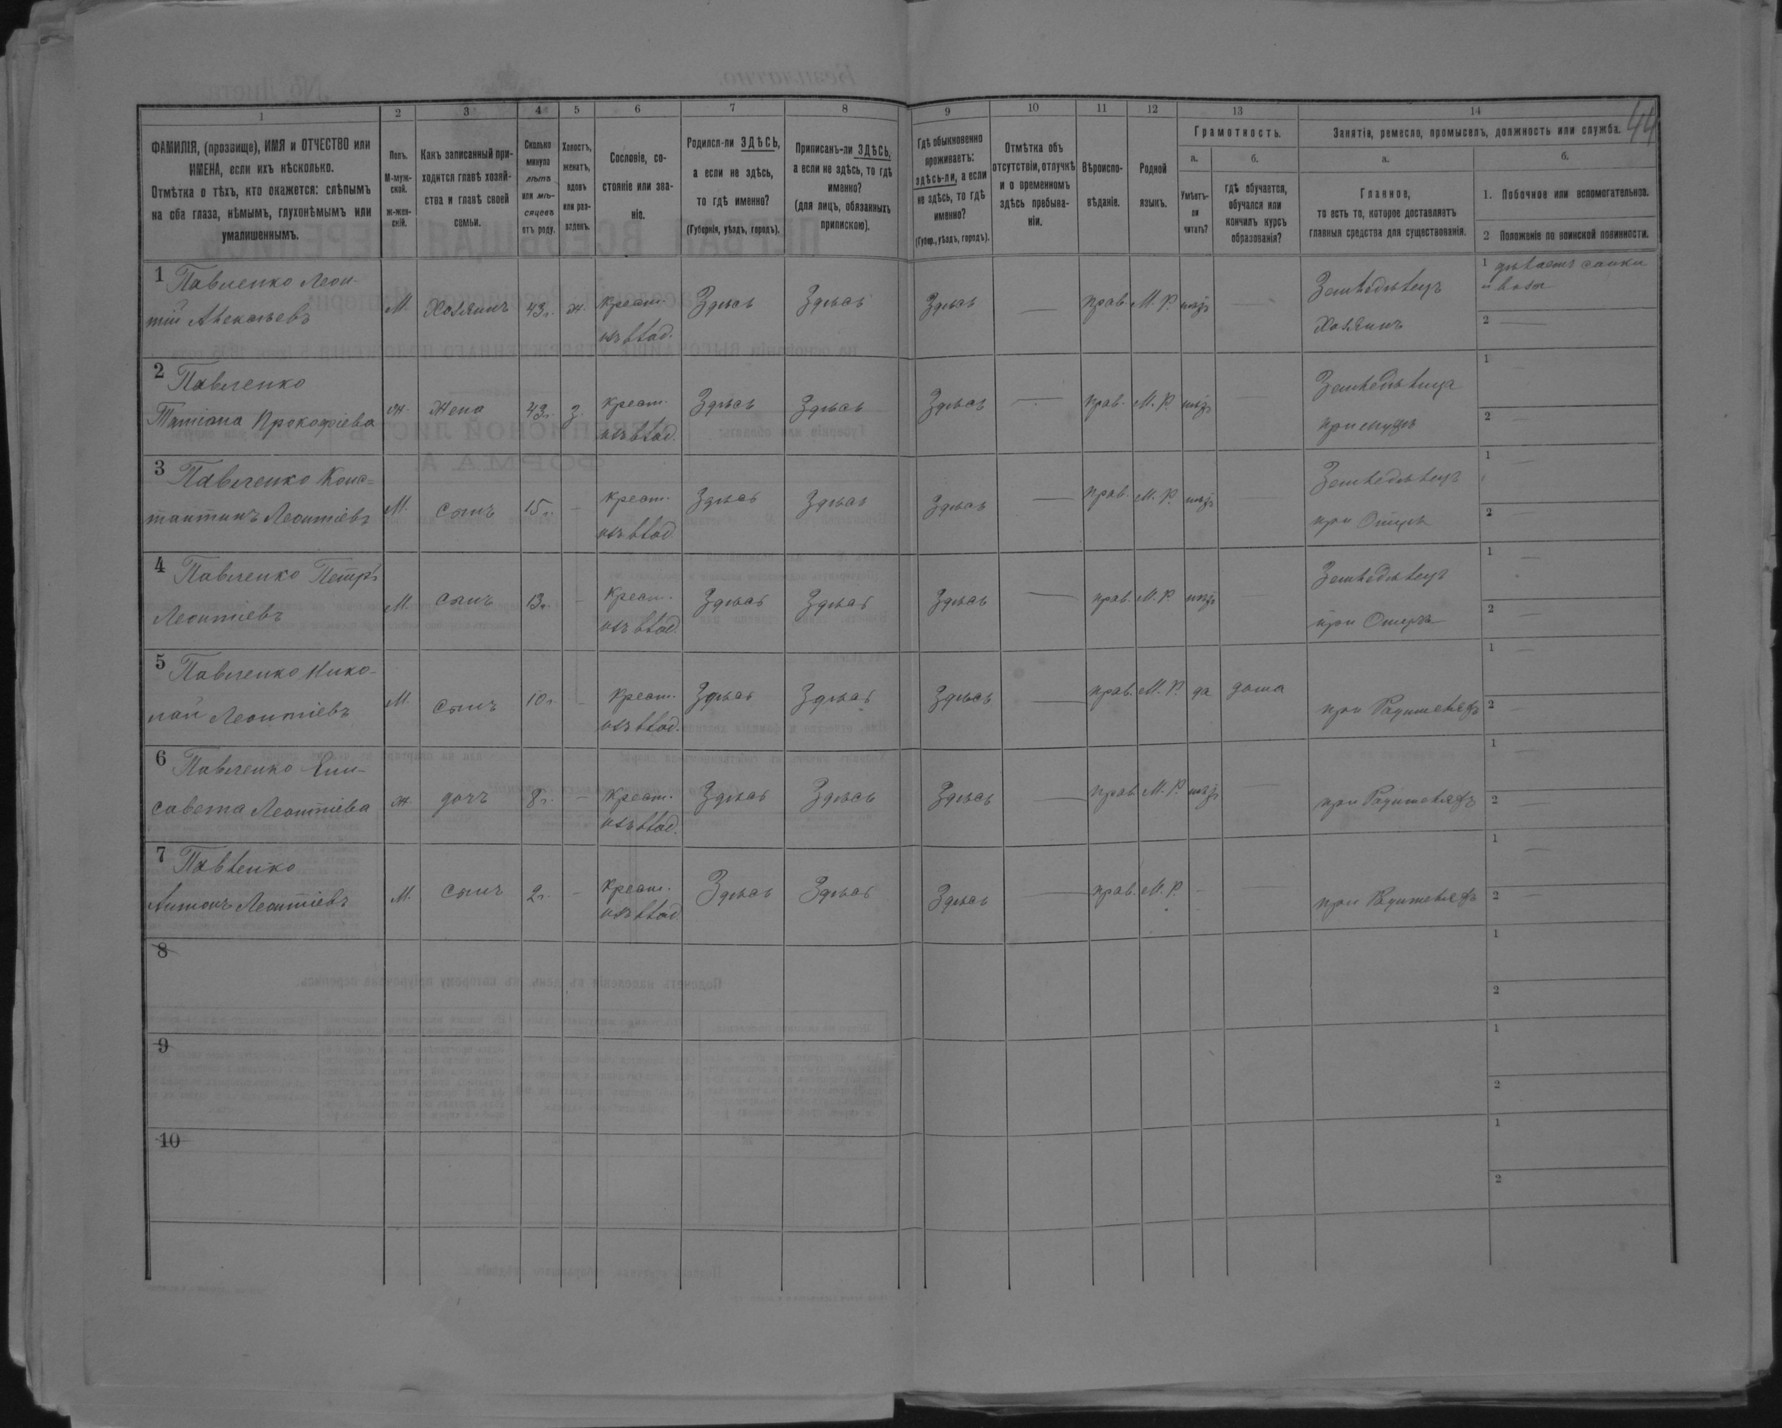 44
1 2 3 4 5 6 7 8 9 10 11 12 13 14
ФАМИЛІЯ, (прозвище), ИМЯ и ОТЧЕСТВО или
ИМЕНА, если ихъ нѣсколько.
Отмѣтка о тѣхъ, кто окажется: слѣпымъ
на оба глаза, нѣмымъ, глухонѣмымъ или
умалишеннымъ.
Полъ.
М-муж-
ской.
ж-жен-
скій.
Какъ записанный при-
ходится главѣ хозяй-
ства и главѣ своей
семьи.
Сколько
минуло
лѣтъ
или мѣ-
сяцевъ
отъ роду.
Холостъ,
женатъ,
вдовъ
или раз-
веденъ.
Сословіе, со-
стояніе или зва-
ніе.
Родился-ли ЗДѢСЬ,
а если не здѣсь,
то гдѣ именно?
(Губернія, уѣздъ, городъ).
Приписанъ-ли ЗДѢСЬ,
а если не здѣсь, то гдѣ
именно?
(для лицъ, обязанныхъ
припискою).
Гдѣ обыкновенно
проживаетъ:
здѣсь-ли, а если
не здѣсь, то гдѣ
именно?
(Губер., уѣздъ, городъ).
Отмѣтка объ
отсутствіи, отлучкѣ
и о временномъ
здѣсь пребыва-
ніи.
Вѣроиспо-
вѣданіе.
Родной
языкъ.
Грамотность.
а.
Умѣетъ-
ли
читать?
б.
гдѣ обучается,
обучался или
кончилъ курсъ
образованія?
Занятіе, ремесло, промыселъ, должность или служба.
а.
Главное,
то есть то, которое доставляетъ
главныя средства для существованія.
б.
1. Побочное или вспомогательное.
2 Положеніе по воинской повинности.
1 Павленко Леон-
тій М. Хозяинъ 43г. ж. Крест. Здѣсь Здѣсь Здѣсь — прав. М. Р. нѣтъ — Земледѣлецъ 1 дѣлаетъ санки
изъ влад. Хозяинъ 2 —
2 Павленко
Татіана Прокофіева ж. Жена 43г. з. Крест. Здѣсь Здѣсь Здѣсь — прав. М. Р. нѣтъ — Земледѣлица 1 —
изъ влад. при мужѣ 2 —
3 Павленко Конс-
тантинъ Леонтіевъ М. сынъ 15г. - Крест. Здѣсь Здѣсь Здѣсь — прав. М. Р. нѣтъ Земледѣлецъ 1 —
изъ влад. при Отцѣ 2 —
4 Павленко Петръ
Леонтіевъ М. сынъ 13г. - Крест. Здѣсь Здѣсь Здѣсь — прав. М. Р. нѣтъ — Земледѣлецъ 1 —
изъ влад. при Отцѣ 2 —
5 Павленко Нико-
лай Леонтіевъ М. сынъ 10г. - Крест. Здѣсь Здѣсь Здѣсь — прав. М. Р. да дома 1 —
изъ влад. при Родителяхъ 2 —
6 Павленко Ели-
савета Леонтіева ж. дочь 8г. — Крест. Здѣсь Здѣсь Здѣсь — прав. М. Р. нѣтъ — 1 —
изъ влад. при Родителяхъ 2 —
7 Павленко
Антонъ Леонтіевъ М. сынъ 2г. - Крест. Здѣсь Здѣсь Здѣсь — прав. М. Р. - 1 —
изъ влад. при Родителяхъ 2 —
8 1
2
9 1
2
10 1
2